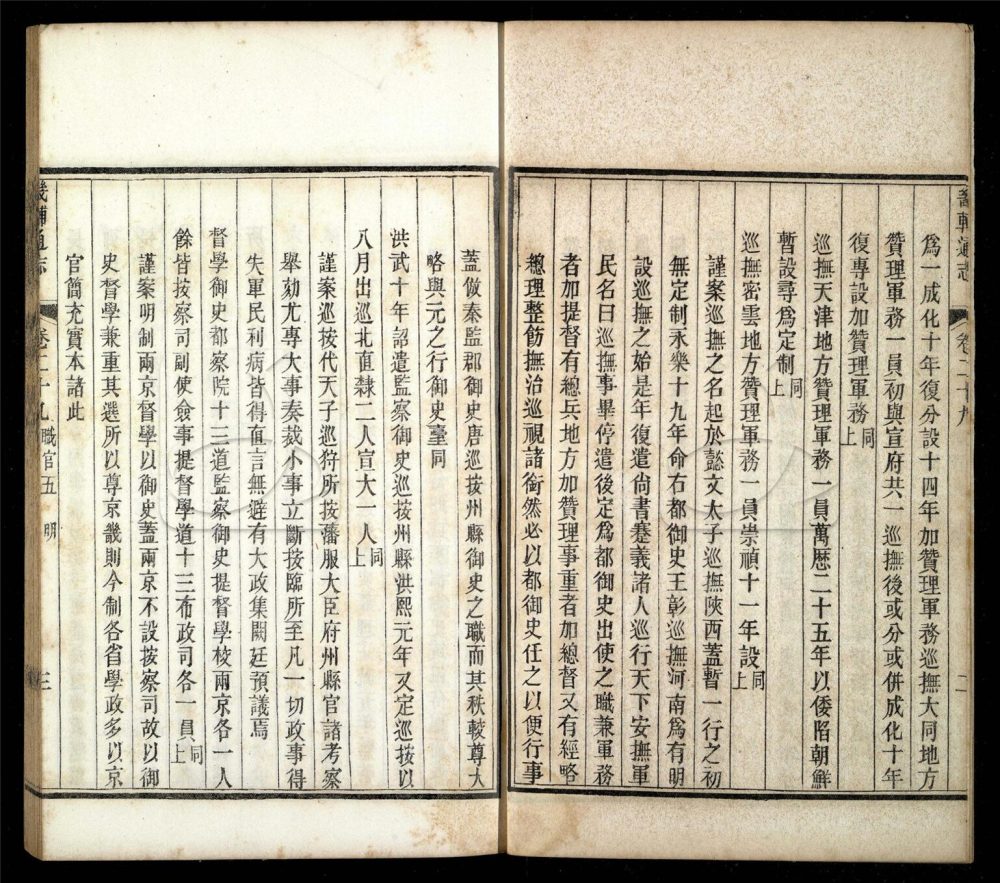 畿輔通志
卷二十九
二
為一成化十年復分設十四年加贊理軍務巡撫大同地方
贊理軍務一員初與宣府共一巡撫後或分或併成化十年
復專設加贊理軍務同上
巡撫天津地方贊理軍務一員萬曆二十五年以倭陷朝鮮
暫設尋為定制同上
巡撫密雲地方贊理軍務一員崇禎十一年設同上
謹案巡撫之名起於懿文太子巡撫陝西蓋暫一行之初
無定制永樂十九年命右都御史王彰巡撫河南為有明
設巡撫之始是年復遣尚書蹇義諸人巡行天下安撫軍
民名曰巡撫事畢停遣後定為都御史出使之職兼軍務
者加提督有總兵地方加贊理事重者加總督又有經略
總理整飭撫治巡視諸銜然必以都御史任之以便行事
蓋倣秦監郡御史唐巡按州縣御史之職而其秩較尊大
略與元之行御史臺同
洪武十年詔遣監察御史巡按州縣洪熙元年又定巡按以
八月出巡北直隸二人宣大一人同上
謹案巡按代天子巡狩所按藩服大臣府州縣官諸考察
舉劾尤專大事奏裁小事立斷按臨所至凡一切政事得
失軍民利病皆得直言無避有大政集闕廷預議焉
督學御史都察院十三道監察御史提督學校兩京各一人
餘皆按察司副使僉事提督學道十三布政司各一員同上
謹案明制兩京督學以御史蓋兩京不設按察司故以御
史督學兼重其選所以尊京畿則今制各省學政多以京
官簡充實本諸此
畿輔通志
卷二十九 職官五 明
三